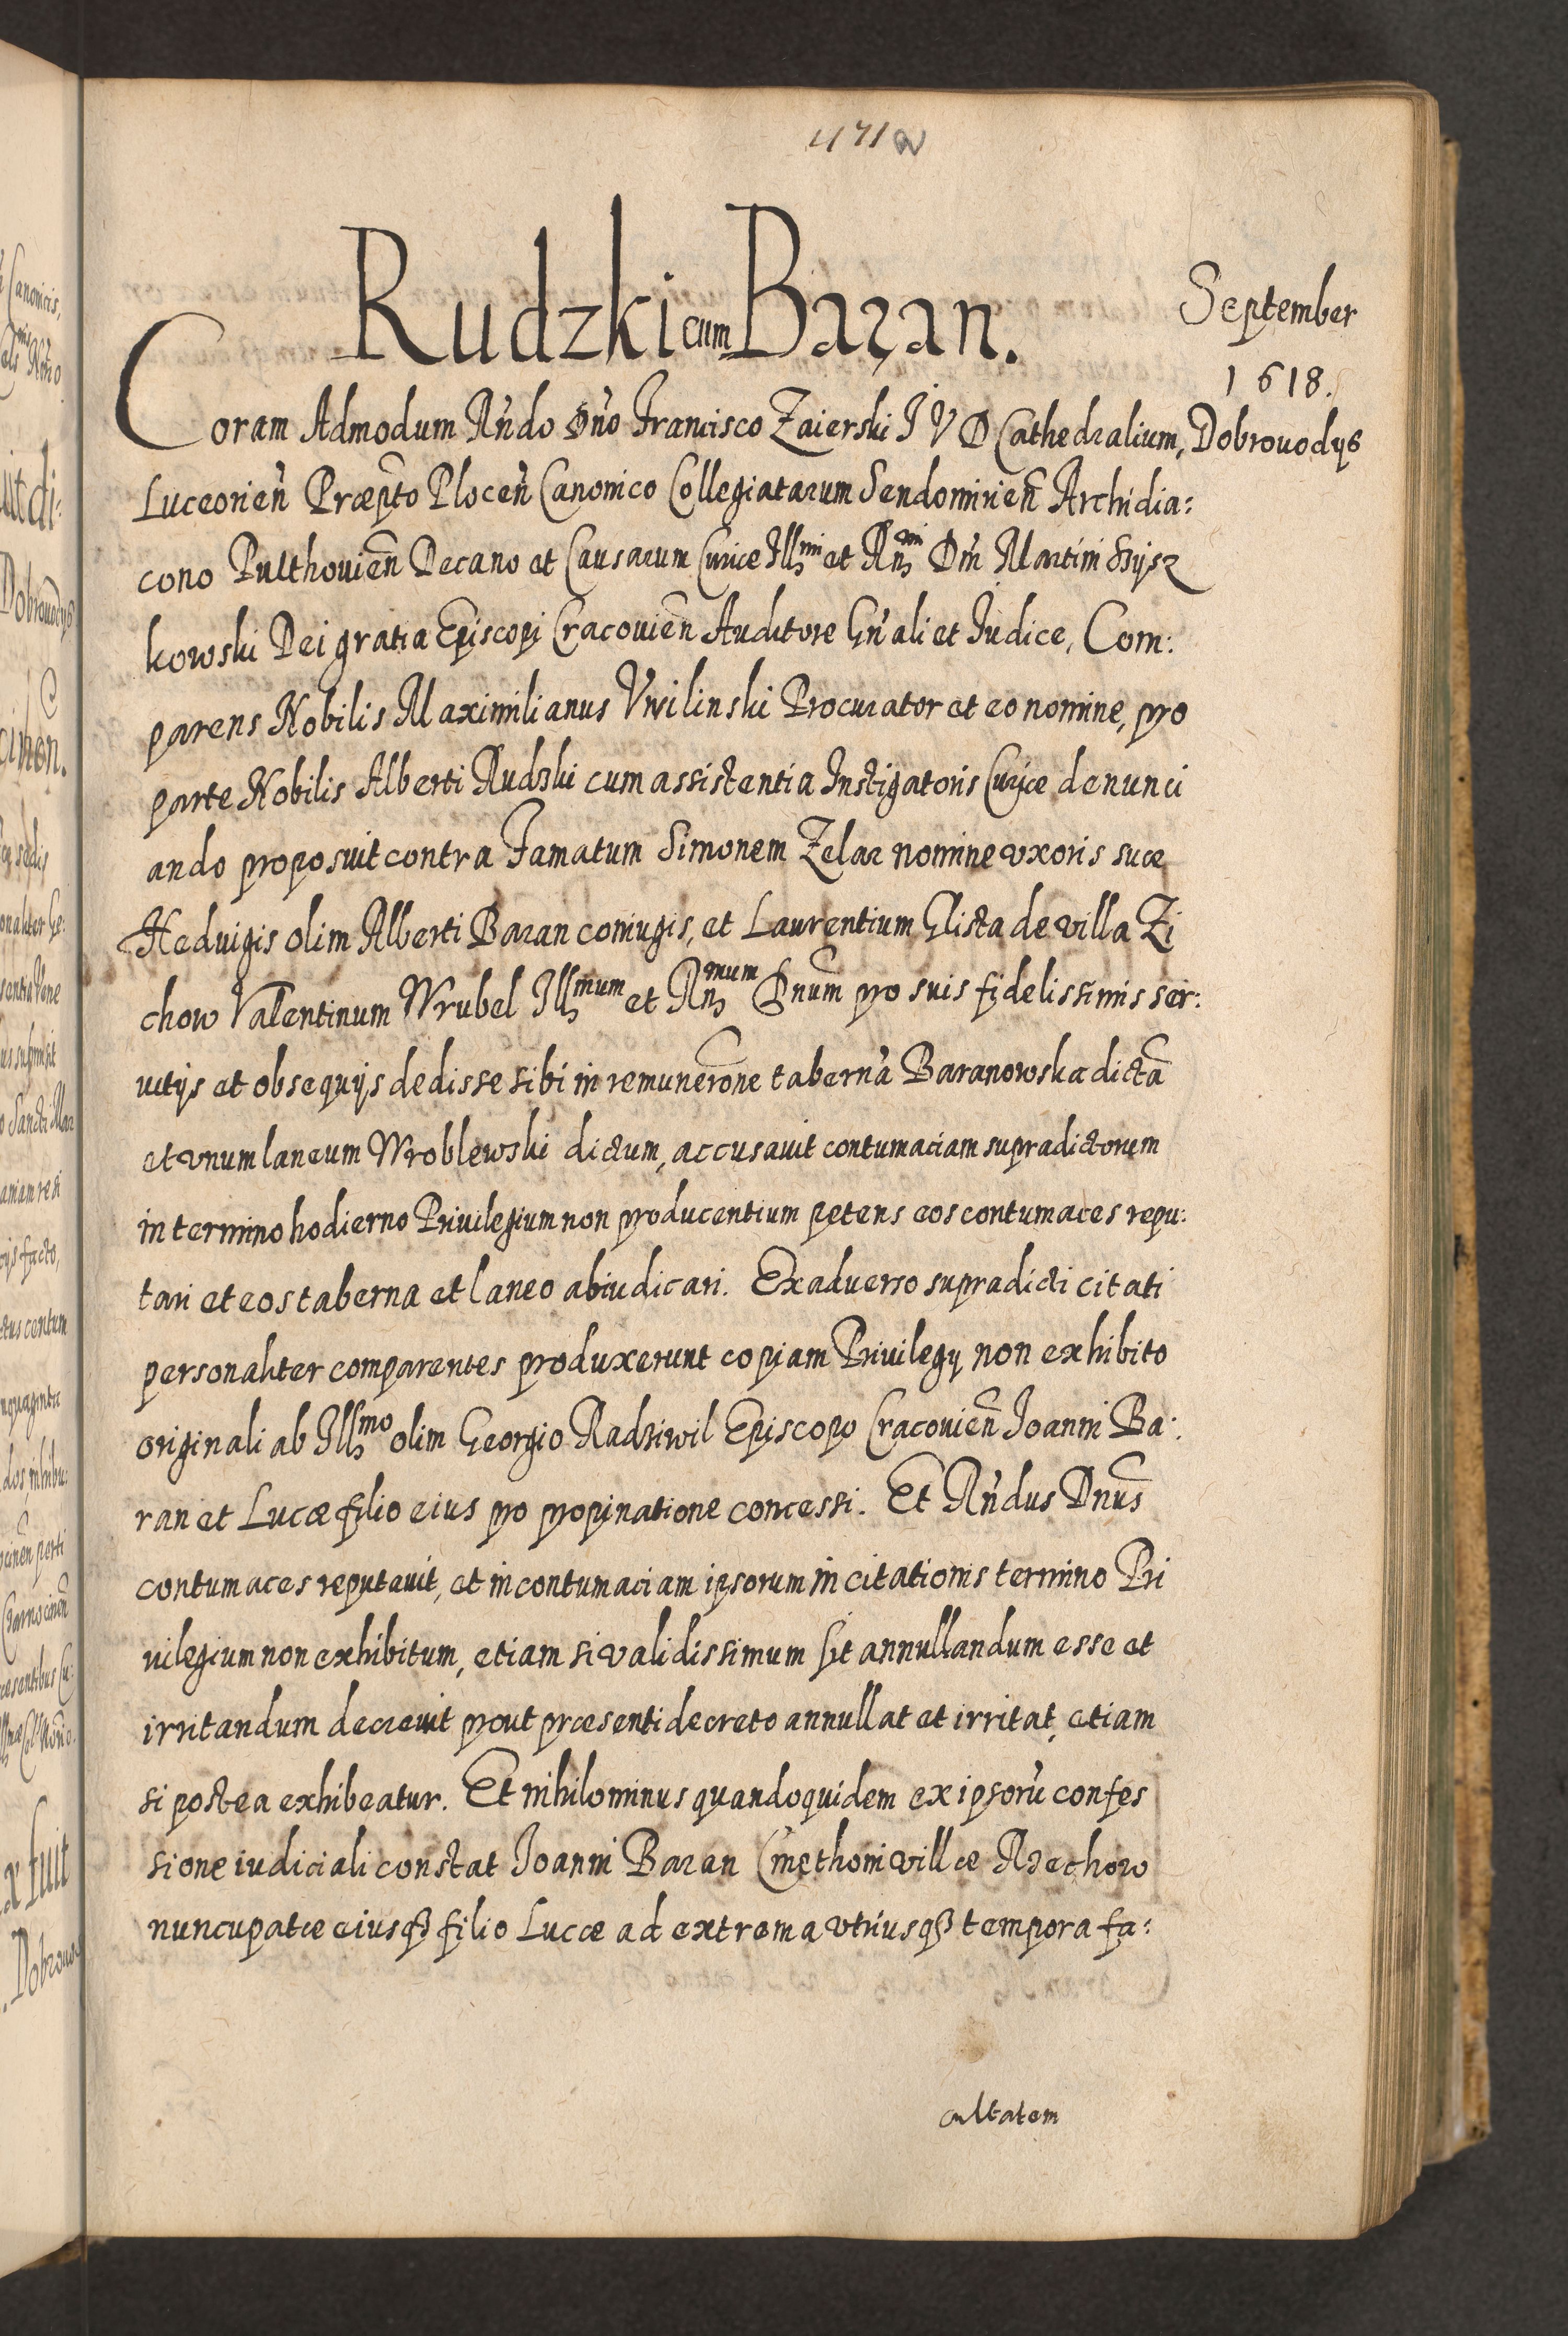 471a
Rudzki cum Baran.
September
1618.
Dobrouodys
Coram Admodum Rńdo Dńo Francisco Zaierski I V D Cathedralium,
Luceorień Præpto Ploceń Canonico Collegiatarum Sendomirien Archidia:
cono Pulthouien Decano et Causarum Curiæ Illmi et Rnmi Dni Martini Szysz
kowski Dei gratia Episcopi Cracouien Auditore Gńali et Iudice, Com:
parens Nobilis Maximilianus Vvilinski Procurator et eo nomine, pro
parte Nobilis Alberti Rudzki cum assistentia Instigatoris Curiæ denunci
ando proposuit contra Famatum Simonem Zelaz nomine vxoris suæ
Heduigis olim Alberti Baran coniugis, et Laurentium Glista de villa Zi
chow Valentinum Wrubel Illmum et Rnmum Dnum pro suis fidelissimis ser:
uitijs et obsequijs dedisse sibi in remunerone tabernã Baranowska dictã
et vnum laneum Wroblewski dictum, accusauit contumaciam supradictorum
in termino hodierno Priuilegium non producentium petens eos contumaces repu:
tari et eos taberna et laneo abiudicari. Ex aduerso supradicti citati
personaliter comparentes produxerunt copiam Priuilegij non exhibito
originali ab Illmo olim Georgio Radziwil Episcopo Cracouien Ioanni Ba:
ran et Lucæ filio eius pro propinatione concessi. Et Rńdus Dnus
contumaces reputauit, et in contumaciam ipsorum in citationis termino Pri
uilegium non exhibitum, etiam si validissimum sit annullandum esse et
irritandum decreuit prout præsenti decreto annullat et irritat, etiam
si postea exhibeatur. Et nihilominus quandoquidem ex ipsorũ confes
sione iudiciali constat Ioanni Baran Cmethoni villæ Rzechow
nuncupatæ eiusqȝ filio Lucæ ad extrema vtriusqȝ tempora fa:
cultatem